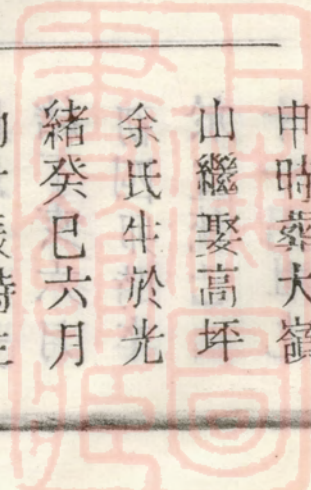 申時葬大鶴
山繼娶高坪
余氏生於光
緒癸巳六月